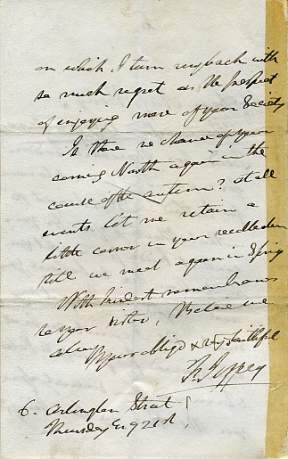 on which I turn my back with
so much regret as the prospect
of enjoying more of your Society
Is there no chance of your
coming North again in the
course of the autumn? At all
events let me retain a
little corner in your recollection
till we meet again in Spring
With kindest remembrances
to your sister, Believe me
always
Your obliged & very faithful
F. Jeffrey
6. Arlington Street
Thursday Evg 21st